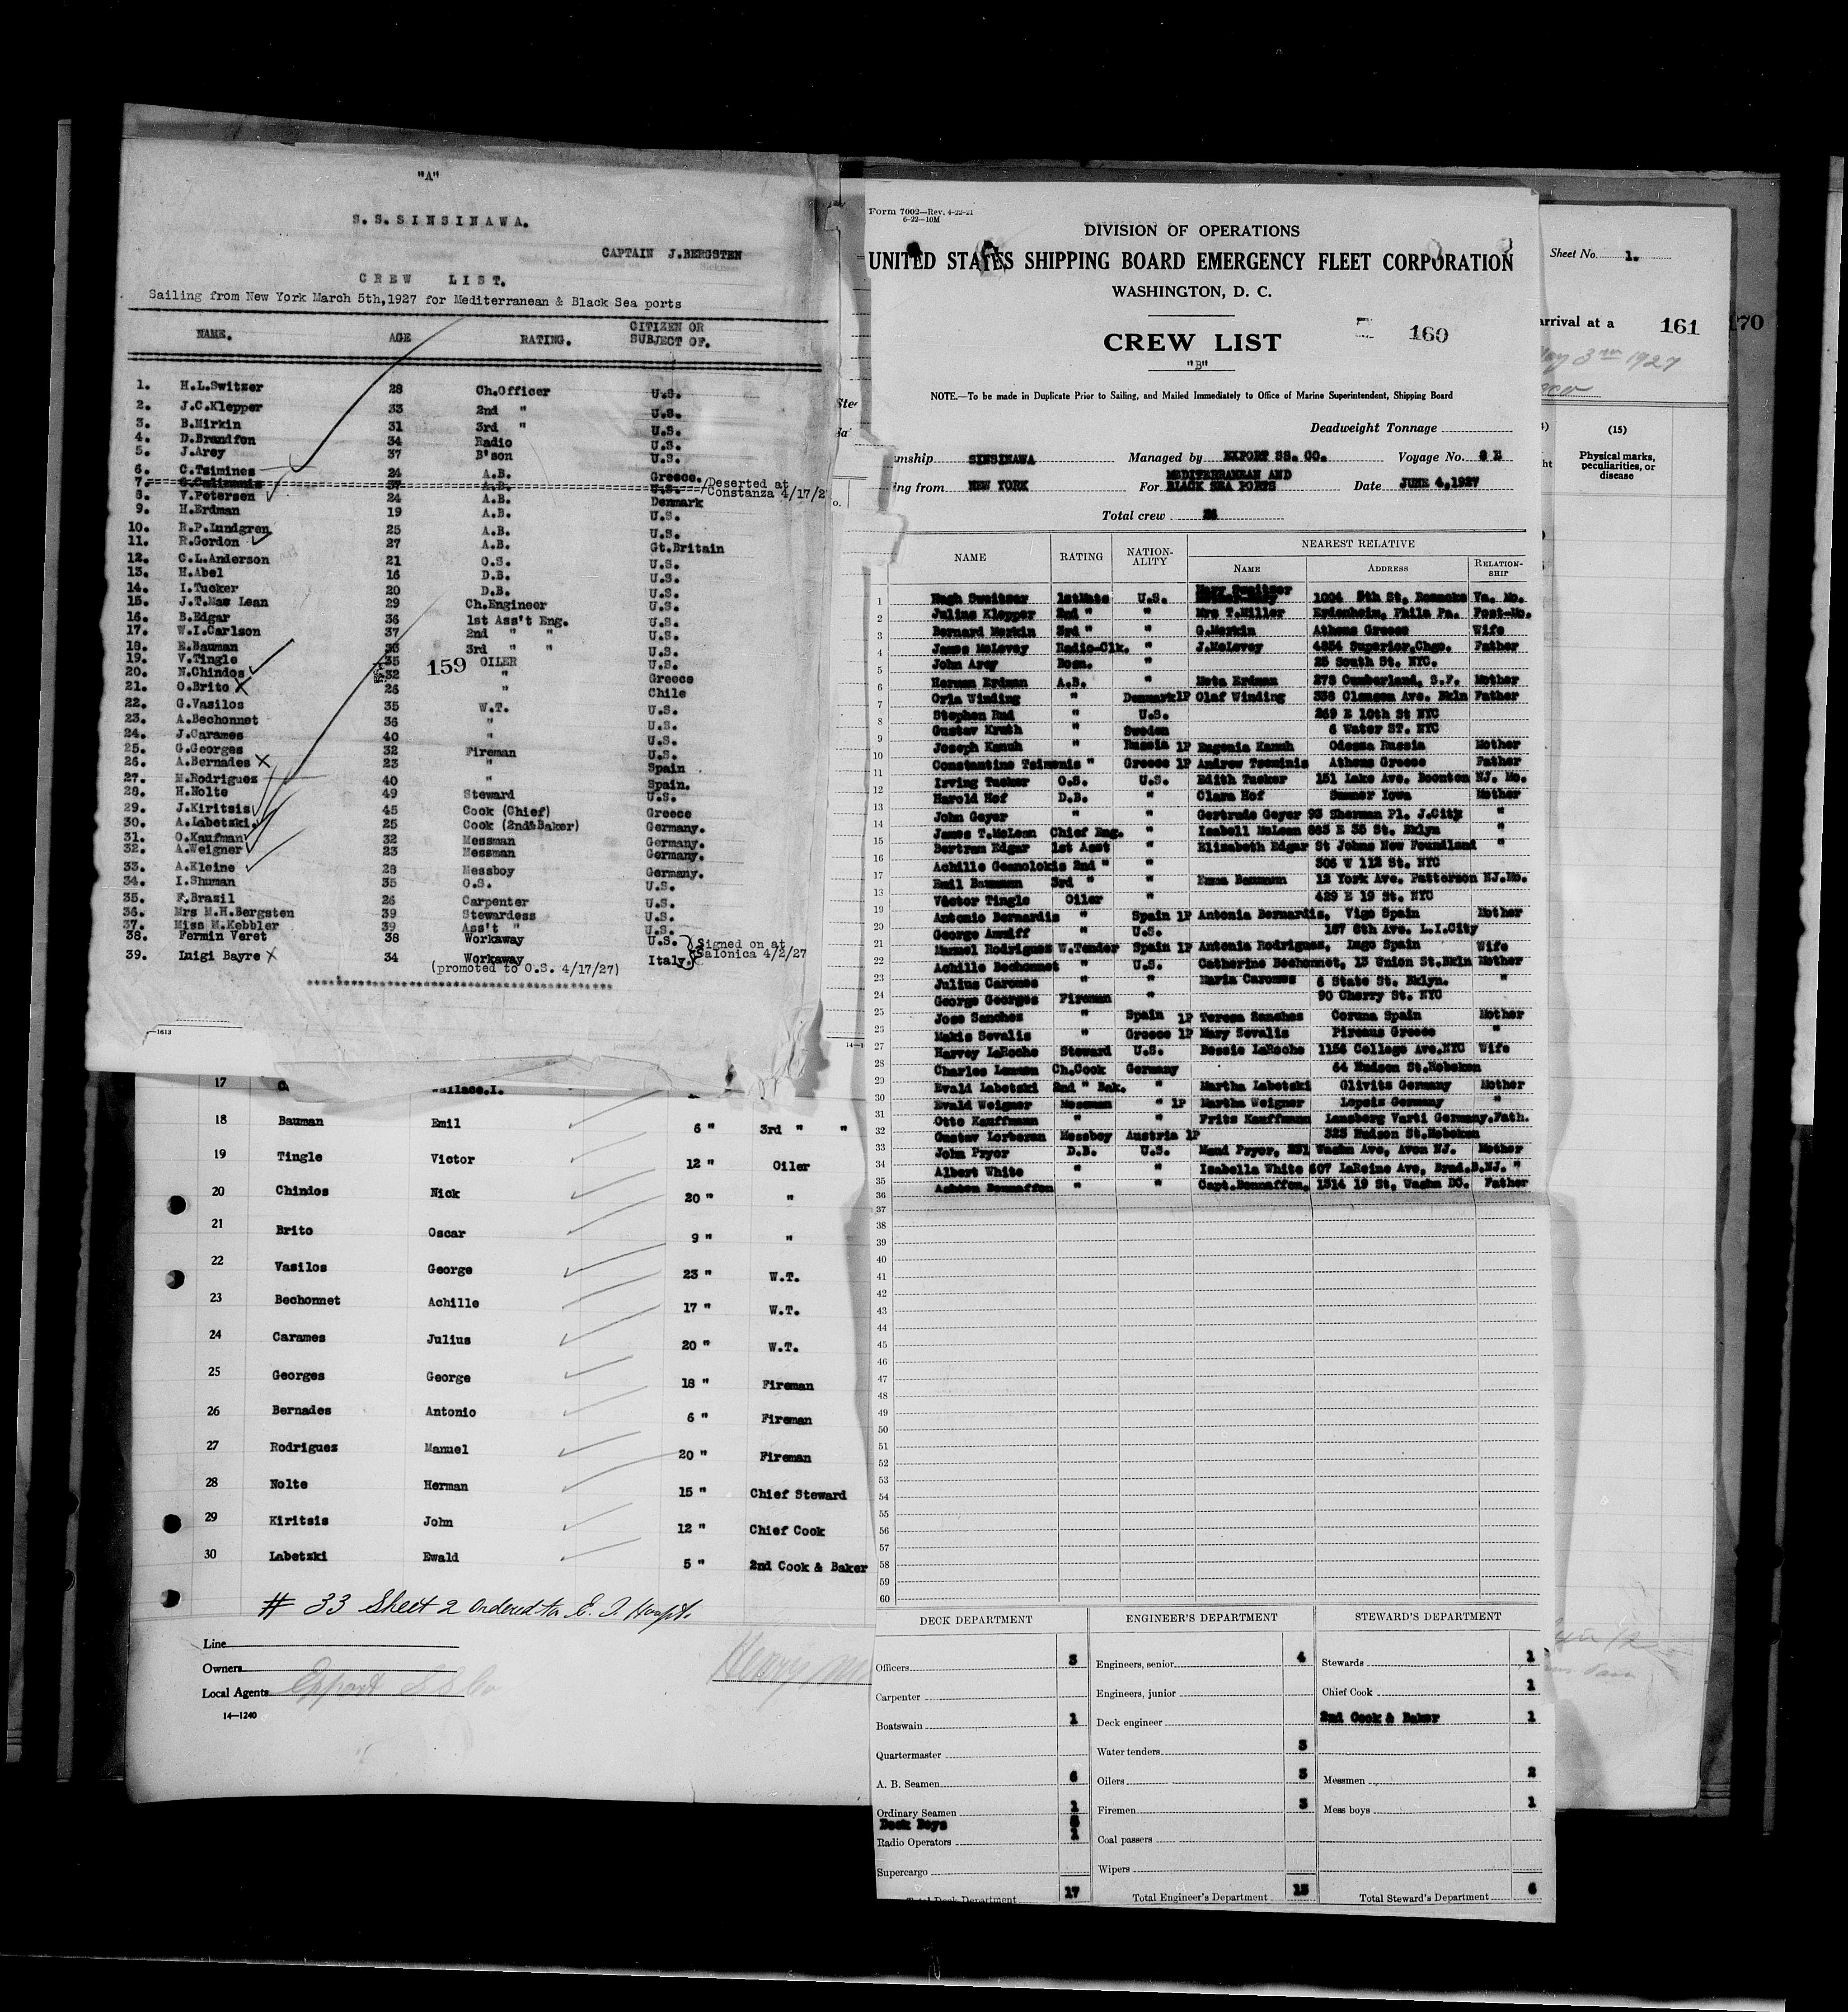 "A"
S.S.SINSINAWA.
CAPTAIN J.BERGSTEN
CREW LIST.
Sailing from New York March 5th,1927 for Mediterranean & Black Sea ports
NAME. AGE RATING. CITIZEN OR SUBJECT OF.
1. H.L.Switzer 28 Ch.Officer U.S.
2. J.C.Klepper 33 2nd " U.S.
3. B.Mirkin 31 3rd " U.S.
4. D.Brandfon 34 Radio U.S.
5. J.Arey 37 B'son U.S.
6. C.Tsimines 24 A.B. Greece.
7. 37 A.B. U.S. Deserted at Constanza 4/17/2
8. V.Petersen 24 A.B. Denmark
9. H.Erdman 19 A.B. U.S.
10. R.P.Lundgren 25 A.B. U.S.
11. R.Gordon 27 A.B. Gt.Britain
12. C.L.Anderson 21 O.S. U.S.
13. H.Abel 16 D.B. U.S.
14. I.Tucker 20 D.B. U.S.
15. J.T.Mac Lean 29 Ch.Engineer U.S.
16. B.Edgar 36 1st Ass't Eng. U.S.
17. W.I.Carlson 37 2nd " " U.S.
18. E.Bauman 3rd " " U.S.
19. V.Tingle 35 OILER U.S.
159
20. N.Chindos 32 " Greece
21. O.Brito 26 " Chile
22. G.Vasilos 35 W.T. U.S.
23. A.Bechonnet 36 " U.S.
24. J.Carames 40 " U.S.
25. G.Georges 32 Fireman U.S.
26. A.Bernades 23 " Spain
27. M.Rodriguez 40 " Spain.
28. H.Nolte 49 Steward U.S.
29. J.Kiritsis 45 Cook (Chief) Greece
30. A.Labetzki. 25 Cook (2nd&Baker) Germany.
31. O.Kaufman 32 Messman Germany.
32. A.Weigner 23 Messman Germany.
33. A.Kleine 28 Messboy Germany.
34. I.Shuman 35 O.S. U.S.
35. F.Brazil 26 Carpenter U.S.
36. Mrs M.H.Bergsten 39 Stewardess U.S.
37. Miss M.Kebbler 39 Ass't " U.S.
38. Fermin Veret 38 Workaway U.S.
39. Luigi Bayre 34 Workaway Italy. Signed on at Salonica 4/2/27
(promoted to O.S. 4/17/27)
—1613
17 Wallace.I.
18 Bauman Emil 6 " 3rd " "
19 Tingle Victor 12 " Oiler
20 Chindos Nick 20 " "
21 Brito Oscar 9 " "
22 Vasilos George 23 " W.T.
23 Bechonnet Achille 17 " W.T.
24 Carames Julius 20 " W.T.
25 Georges George 18 " Fireman
26 Bernades Antonio 6 " Fireman
27 Rodriguez Manuel 20 " Fireman
28 Nolte Herman 15 " Chief Steward
29 Kiritsis John 12 " Chief Cook
30 Labetzki Ewald 5 " 2nd Cook & Baker
# 33 Sheet 2 ordered to E. I. Hospt.
Line
Owners
Local Agents Export S S Co
14—1240
Form 7002—Rev. 4-22-21
6-22—10M
DIVISION OF OPERATIONS
UNITED STATES SHIPPING BOARD EMERGENCY FLEET CORPORATION
WASHINGTON, D. C.
CREW LIST 160
"B"
NOTE.—To be made in Duplicate Prior to Sailing, and Mailed Immediately to Office of Marine Superintendent, Shipping Board
Deadweight Tonnage
mship SINSINAWA Managed by EXPORT SS. CO. Voyage No. 8 E
ing from NEW YORK For MEDITERRANEAN AND BLACK SEA PORTS Date JUNE 4,1927
Total crew
NAME RATING NATIONALITY NEAREST RELATIVE
NAME ADDRESS RELATIONSHIP
1 Hugh Sweitzer 1stMate U.S. Mary Sweitzer 1004 5th St. Roanoke Va. Mo.
2 Julius Klepper 2nd " " Mrs T.Miller Erdenheim, Phila Pa. Fost-Mo.
3 Bernard Merkin 3rd " " G.Merkin Athens Greece Wife
4 James McLevey Radio-Clk. " J.McLevey 4834 Superior.Chgo. Father
5 John Arey Bosn. " 25 South St. NYC.
6 Herman Erdman A.B. " Meta Erdman 278 Cumberland, S.F. Mother
7 Orla Winding " Denmark 1P Olaf Winding 338 Clemson Ave. Bkln Father
8 Stephen Rud " U.S. 269 E 10th St NYC
9 Gustav Kruth " Sweden 6 Water ST. NYC
10 Joseph Kanuh " Russia 1P Eugenia Kanuh Odessa Russia Mother
11 Constantine Tsimonis " Greece 1P Andrew Tsominis Athens Greece Father
12 Irving Tucker O.S. U.S. Edith Tucker 151 Lake Ave. Boonton NJ. Mo.
13 Harold Hof D.B. " Clara Hof Sumner Iowa Mother
14 John Geyer " " Gertrude Geyer 93 Sherman Pl. J.City "
15 James T.McLean Chief Eng. " Isabell McLean 663 E 35 St. Bklyn "
16 Bertram Edgar 1st Asst " Elizabeth Edgar St Johns New Foundland "
17 Achille 2nd " " 306 W 112 St. NYC
13 Emil Baumann 3rd " " Emma Baumann 12 York Ave. Patterson NJ.Mo.
19 Victor Tingle Oiler " 429 E 19 St. NYC
20 Antonio Bernardis " Spain 1P Antonia Bernardis, Vigo Spain Mother
21 George " U.S. 167 8th Ave. L.I.City
22 Manuel Rodriguez W.Tender Spain 1P Antonia Rodriguez, Lugo Spain Wife
23 Achille Bechonnet " U.S. Catherine Bechonnet, 13 Union St.Bkln Mother
24 Julius Caromes " " Maria Caromes 6 State St. Bklyn. "
25 George Georges Fireman " 90 Cherry St. NYC
26 Jose Sanchez " Spain 1P Teresa Sanches Coruna Spain Mother
27 Makis Sevalis " Greece 1P Mary Sevalis Pireaus Greece "
28 Harvey LaRoche Steward U.S. Bessie LaRoche 1156 College Ave.NYC Wife
29 Charles Ch.Cook Germany 64 Hudson St.Hoboken
30 Evald Labetski 2nd " Bak. " Martha Labetski Glivits Germany Mother
31 Evald Weigner Messman " 1P Martha Weigner Lepsis Germany "
32 Otto Kauffmann " " Frits Kauffmann Lansberg Varti Germany.Fath.
33 Gustav Messboy Austria 1P 323 Hudson St.Hoboken
34 John Pryor D.B. U.S. Maud Pryor, 251 Washn Ave, Avon NJ. Mother
35 Albert White " " Isabella White 607 LaReine Ave, Brad.B.NJ. "
36 Ashton Bonnaffon " " Capt.Bonnaffon. 1314 19 St, Washn DC. Father
37
38
39
40
41
42
43
44
45
46
47
48
49
50
51
52
53
54
55
56
57
58
59
60
DECK DEPARTMENT ENGINEER'S DEPARTMENT STEWARD'S DEPARTMENT
Officers 3 Engineers, senior 4 Stewards 1
Carpenter Engineers, junior Chief Cook 1
Boatswain 1 Deck engineer 2nd Cook & Baker 1
Quartermaster Water tenders 3
A. B. Seamen 6 Oilers 3 Messmen 2
Ordinary Seamen 1 Firemen 3 Mess boys 1
Deck Boys
Radio Operators 1 Coal passers
Supercargo Wipers
Total Deck Department 17 Total Engineer's Department 13 Total Steward's Department 6
Sheet No. 1.
arrival at a 161 170
May 3rd 1927
(15)
Physical marks, peculiarities, or disease